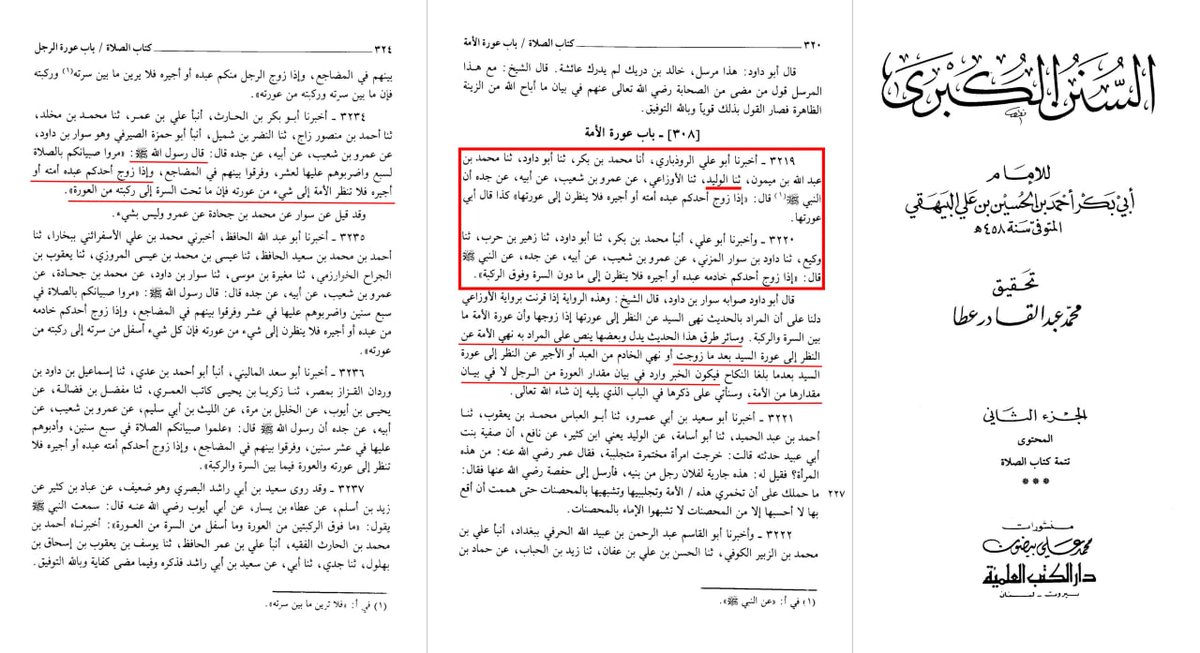 السنن الكبرى
للإمام
أبي بكر أحمد بن الحسين بن علي البيهقي
المتوفى سنة ٤٥٨ ه
تحقيق
محمد عبد القادر عطا
الجزء الثاني
المحتوى
تتمة كتاب الصلاة
***
منشورات
محمد علي بيضون
دار الكتب العلمية
بيروت - لبنان
٣٢٠ كتاب الصلاة / باب عورة الأمة
قال أبو داود: هذا مرسل، خالد بن دريك لم يدرك عائشة. قال الشيخ: مع هذا
المرسل قول من مضى من الصحابة رضي الله تعالى عنهم في بيان ما أباح الله من الزينة
الظاهرة فصار القول بذلك قوياً وبالله التوفيق.
[٣٠٨] ـ باب عورة الأمة
٣٢١٩ ـ أخبرنا أبو علي الروذباري، أنا محمد بن بكر، ثنا أبو داود، ثنا محمد بن
عبد الله بن ميمون، ثنا الوليد، ثنا الأوزاعي، عن عمرو بن شعيب، عن أبيه، عن جده أن
النبي ﷺ(١) قال: «إذا زوج أحدكم عبده أمته أو أجيره فلا ينظرن إلى عورتها» كذا قال أبي
عورتها.
٣٢٢٠ ـ وأخبرنا أبو علي، أنبأ محمد بن بكر، ثنا أبو داود، ثنا زهير بن حرب، ثنا
وكيع، ثنا داود بن سوار المزني، عن عمرو بن شعيب، عن أبيه، عن جده، عن النبي ﷺ
قال: «إذا زوج أحدكم خادمه عبده أو أجيره فلا ينظرن إلى ما دون السرة وفوق الركبة».
قال أبو داود صوابه سوار بن داود، قال الشيخ: وهذه الرواية إذا قرنت برواية الأوزاعي
دلنا على أن المراد بالحديث نهى السيد عن النظر إلى عورتها إذا زوجها وأن عورة الأمة ما
بين السرة والركبة. وسائر طرق هذا الحديث يدل وبعضها ينص على المراد به نهي الأمة عن
النظر إلى عورة السيد بعد ما زوجت أو نهي الخادم من العبد أو الأجير عن النظر إلى عورة
السيد بعدما بلغا النكاح فيكون الخبر وارد في بيان مقدار العورة من الرجل لا في بيان
مقدارها من الأمة، وسنأتي على ذكرها في الباب الذي يليه إن شاء الله تعالى.
٣٢٢١ ـ أخبرنا أبو سعيد بن أبي عمرو، ثنا أبو العباس محمد بن يعقوب، ثنا
أحمد بن عبد الحميد، ثنا أبو أسامة، عن الوليد يعني ابن كثير، عن نافع، أن صفية بنت
أبي عبيد حدثته قالت: خرجت امرأة مختمرة متجلببة، فقال عمر رضي الله عنه: من هذه
المرأة؟ فقيل له: هذه جارية لفلان رجل من بنيه، فأرسل إلى حفصة رضي الله عنها فقال:
٢٢٧ ما حملك على أن تخمري هذه / الأمة وتجلببيها وتشبهيها بالمحصنات حتى هممت أن أقع
بها لا أحسبها إلا من المحصنات لا تشبهوا الإماء بالمحصنات.
٣٢٢٢ ـ وأخبرنا أبو القاسم عبد الرحمن بن عبيد الله الحرفي ببغداد، أنبأ علي بن
محمد بن الزبير الكوفي، ثنا الحسن بن علي بن عفان، ثنا زيد بن الحباب، عن حماد بن
(١) في أ: «عن النبي ﷺ».
٣٢٤ كتاب الصلاة / باب عورة الرجل
بينهم في المضاجع، وإذا زوج الرجل منكم عبده أو أجيره فلا يرين ما بين سرته(١) وركبته
فإن ما بين سرته وركبته من عورته».
٣٢٣٤ ـ أخبرنا أبو بكر بن الحارث، أنبأ علي بن عمر، ثنا محمد بن مخلد،
ثنا أحمد بن منصور زاج، ثنا النضر بن شميل، أنبأ أبو حمزة الصيرفي وهو سوار بن داود،
عن عمرو بن شعيب، عن أبيه، عن جده قال: قال رسول الله ﷺ: «مروا صبيانكم بالصلاة
لسبع واضربوهم عليها لعشر، وفرقوا بينهم في المضاجع، وإذا زوج أحدكم عبده أمته أو
أجيره فلا تنظر الأمة إلى شيء من عورته فإن ما تحت السرة إلى ركبته من العورة».
وقد قيل عن سوار عن محمد بن جحادة عن عمرو وليس بشيء.
٣٢٣٥ ـ أخبرنا أبو عبد الله الحافظ، أخبرني محمد بن علي الأسفرائني ببخارا، ثنا
أحمد بن محمد بن سعيد الحافظ، ثنا عيسى بن محمد بن عيسى المروزي، ثنا يعقوب بن
الجراح الخوارزمي، ثنا مغيرة بن موسى، ثنا سوار بن داود، عن محمد بن جحادة، عن
عمرو بن شعيب، عن أبيه، عن جده قال: قال رسول الله ﷺ: «مروا صبيانكم بالصلاة في
سبع سنين واضربوهم عليها في عشر وفرقوا بينهم في المضاجع، وإذا زوج أحدكم خادمه
من عبده أو أجيره فلا ينظرن إلى شيء من عورته فإن كل شيء أسفل من سرته إلى ركبته من
عورته».
٣٢٣٦ ـ أخبرنا أبو سعد الماليني، أنبأ أبو أحمد بن عدي، ثنا إسماعيل بن داود بن
وردان القزاز بمصر، ثنا زكريا بن يحيى كاتب العمري، ثنا مفضل بن فضالة، عن
يحيى بن أيوب، عن الخليل بن مرة، عن الليث بن أبي سليم، عن عمرو بن شعيب، عن
أبيه، عن جده أن رسول الله ﷺ قال: «علموا صبيانكم الصلاة في سبع سنين، وأدبوهم
عليها في عشر سنين، وفرقوا بينهم في المضاجع، وإذا زوج أحدكم أمته عبده أو أجيره فلا
تنظر إلى عورته والعورة فيما بين السرة والركبة».
٣٢٣٧ ـ وقد روى سعيد بن أبي راشد البصري وهو ضعيف، عن عباد بن كثير عن
زيد بن أسلم، عن عطاء بن يسار، عن أبي أيوب رضي الله عنه قال: سمعت النبي ﷺ
يقول: «ما فوق الركبتين من العورة وما أسفل من السرة من العورة»: أخبرناه أحمد بن
محمد بن الحارث الفقيه، أنبأ علي بن عمر الحافظ، ثنا يوسف بن يعقوب بن إسحاق بن
بهلول، ثنا جدي، ثنا أبي، عن سعيد بن أبي راشد فذكره وفيما مضى كفاية وبالله التوفيق.
(١) في أ: «فلا ترين ما بين سرته».